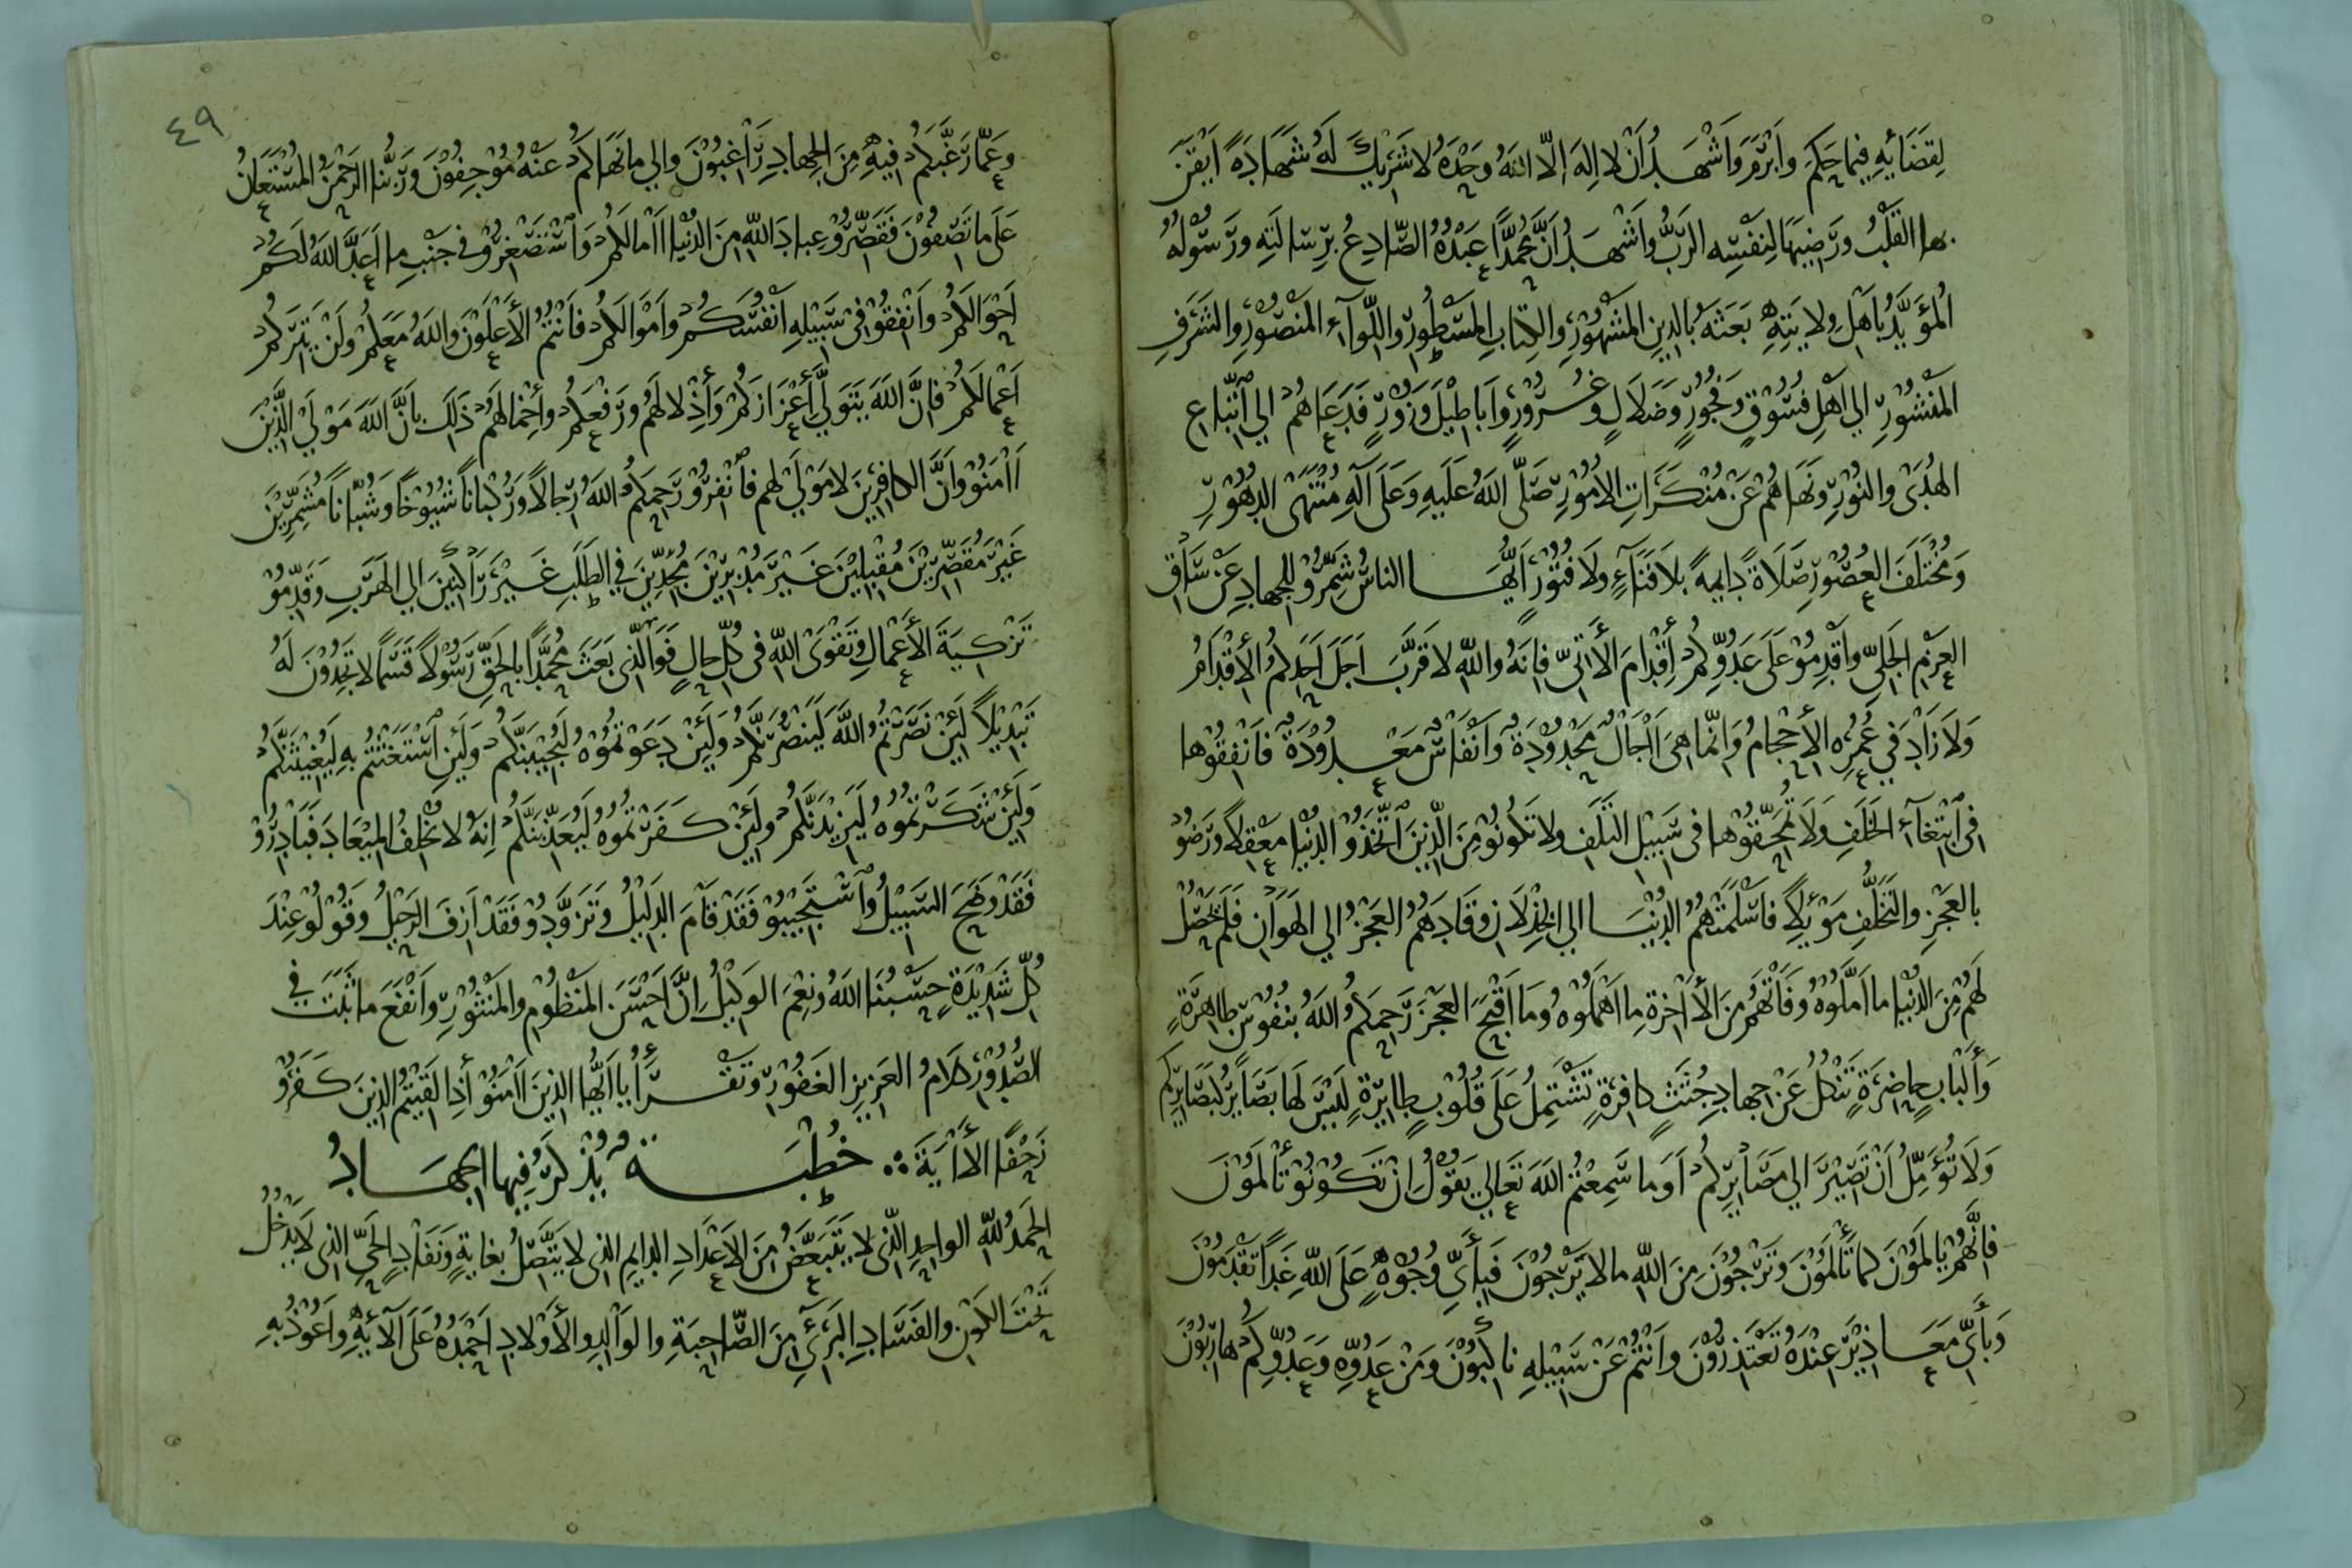 لِقَضَائِهِ فِيمَا حَكَمَ وَأَبْرَمَ وَأَشْهَدُ أَنْ لَا إِلَهَ إِلَّا اللَّهُ وَحْدَهُ لَا شَرِيْكَ لَهُ شَهَادَةً أَيْقَنَ
بِهَا القَلْبُ وَرَضِيَهَا لِنَفْسِهِ الرَبُّ وَأَشْهَدُ أَنَّ مُحَمَّدًا عَبْدُهُ الصَّادِعُ بِرِسَالَتِهِ وَرَسُوْلُهُ
المُؤَيَّدُ بِأَهْلِ وِلَايَتِهِ بَعَثَهُ بِالدِينِ المَشْهُوْرِ وَالكِتَابِ المَسْطُورِ وَاللِّوَاءِ المَنْصُوْرِ وَالشَرَفِ
المَنْشُوْرِ إِلي أَهْلِ فُسُوْقٍ وَفُجُوْرٍ وَضَلَالٍ وَغُرُوْرٍ وَأَبَاطِيْلَ وَزُوْرٍ فَدَعَاهُمْ إِلي اتِّبَاعِ
الهُدَىْ وَالنُوْرِ وَنَهَاهُمْ عَنْ مُنْكَرَاتِ الأُمُوْرِ صَلَّى اللَهُ عَلَيهِ وَعَلَى آلِهِ مُنْتَهَى الدُهُوْرِ
وَمُخْتَلَفَ العُصُوْرِ صَلَاةً دَايِمَةً بِلَا فَنَاءٍ وَلَا فُتُوْرٍ أَيُّهَا النَاسُ شَمِّرُوْ لِلْجِهَادِ عَنْ سَاقِ
العَزْمِ الجَلِيِّ وَأَقْدِمُوْ عَلَى عَدُوِّكُمْ إِقْدَامَ الأَتِيِّ فَإِنَهُ وَاللَّهِ لَا قَرَّبَ أَجَلَ أَحَدِكُمُ الإِقْدَامُ
وَلَا زَادَ فِي عُمُرِهِ الإِحْجَامُ وَإِنَّمَا هِيَ آجَالٌ مَحْدُوْدَةٌ وَأَنْفَاسٌ مَعْدُوْدَةٌ فَأَنْفِقُوْهَا
فِي ابْتِغَاءِ الخَلَفِ وَلَا تُمَحِّقُوْهَا فِي سَبِيْلِ التَلَفِ وَلَا تَكُونُوْ مِنَ الَّذِينَ اتَّخَذُوْ الدُنْيَا مَعْقِلًا وَرَضُوْ
بِالعَجْزِ وَالتَخَلُّفِ مَوْئِلًا فَأَسْلَمَتْهُمُ الدُنْيَا إِلي الخِذْلَانِ وَقَادَهُمُ العَجْزُ إِلي الهَوَانِ فَلَمْ يَحْصُلْ
لَهُمْ مِنَ الدُنْيَا مَا أَمَّلُوْهُ وَفَاتَهُمْ مِنَ الأَآخِرَةِ مَا أَهْمَلُوْهُ وَمَا أَقْبَحَ العَجْزَ رَحِمَكُمُ اللَهُ بِنُفُوْسٍ طَاهِرَةٍ
وَأَلْبَابٍ حَاضِرَةٍ تَنْكُلُ عَنْ جِهَادِ جُثَثٍ كَافِرَةٍ تَشْتَمِلُ عَلَى قُلُوْبٍ طَايِرَةٍ لَيْسَ لَهَا بَصَايِرُ كَبَصَايِرِكُمْ
وَلَا تُؤَمِّلُ أَنْ تَصِيْرَ إِلي مَصَايِرِكُمْ أَوَمَا سَمِعْتُمُ اللَهَ تَعَالَي يَقُوْلُ إِنْ تَكُوْنُوْ تَأْلَمُوْنَ
فَإِنَّهُمْ يَأْلَمُوْنَ كَمَا تَأْلَمُوْنَ وَتَرْجُوْنَ مِنَ اللَّهِ مَا لَا يَرْجُوْنَ فَبِأَيِّ وُجُوْهٍ عَلَى اللَّهِ غَدًا تَقْدَمُوْنَ
وَبِأَيِّ مَعَاذِيْرَ عِنْدَهُ تَعْتَذِرُوْنَ وَأَنْتُمْ عَنْ سَبِيْلِهِ نَاكِبُوْنَ وَمِنْ عَدُوِّهِ وَعَدُوِّكُمْ هَارِبُوْنَ
٤٩
وَعَمَّا رَغَّبَكُمْ فِيْهِ مِنَ الجِهَادِ رَاغِبُوْنَ وَإِلي مَا نَهَاكُمْ عَنْهُ مُوْجِفُوْنَ وَرَبُّنَا الرَحْمَنُ المُسْتَعَانُ
عَلَى مَا تَصِفُوْنَ فَقَصِّرُوْ عِبَادَ اللَّهِ مِنَ الدُنْيَا آمَالَكُمْ وَاسْتَصْغِرُوْ فِي جَنْبِ مَا أَعَدَّ اللَهُ لَكُمْ
أَحْوَالَكُمْ وَأَنْفِقُوْ فِيْ سَبِيْلِهِ أَنْفُسَكُمْ وَأَمْوَالَكُمْ فَأَنْتُمُ الأَعْلَوْنَ وَاللَهُ مَعَكُمْ وَلَنْ يَتِرَكُمْ
أَعْمَالَكُمْ فَإِنَّ اللَهَ يَتَوَلَّي إِعْزَازَكُمْ وَإِذْلَالَهُمْ وَرَفْعَكُمْ وَإِخْمَالَهُمْ ذَلِكَ بِأَنَّ اللَهَ مَوْلَي الَّذِيْنَ
آمَنُوْ وَأَنَّ الكَافِرِيْنَ لَا مَوْلَي لَهُم فَانْفِرُوْ رَحِمَكُمُ اللَهُ رِجَالًا وَرُكْبَانًا شُيُوْخًا وَشُبَّانًا مُشَمِّرِيْنَ
غَيْرَ مُقَصِّرِيْنَ مُقْبِلِيْنَ غَيْرَ مُدْبِرِيْنَ مُجِدِّيْنَ فِي الطَلَبِ غَيْرَ رَاكِنِيْنَ إِلي الهَرَبِ وَقَدِّمُوْ
تَزْكِيَةَ الأَعْمَالِ وَتَقْوَىْ اللَّهِ فِي كُلِّ حَالٍ فَوَالَّذِي بَعَثَ مُحَمَّدًا بِالحَقِّ رَسُوْلًا قَسَمًا لَا تَجِدُوْنَ لَهُ
تَبْدِيْلًا لَئِنْ نَصَرْتُمُ اللَّهَ لَيَنْصُرَنَّكُمْ وَلَئِنْ دَعَوْتُمُوْهُ لَيُجِيْبَنَّكُمْ وَلَئِنِ اسْتَغَثْتُمْ بِهِ لَيُغِيْثَنَّكُمْ
وَلَئِنْ شَكَرْتُمُوْهُ لَيَزِيْدَنَّكُمْ وَلَئِنْ كَفَرْتُمُوْهُ لَيُعَذِّبَنَّكُمْ إِنَهُ لَا يُخْلِفُ المِيْعَادَ فَبَادِرُوْ
فَقَدْ وَضَحَ السَبِيْلُ وَاسْتَجِيْبُوْ فَقَدْ قَامَ الدَلِيْلُ وَتَزَوَّدُوْ فَقَدْ أَزِفَ الرَحِيْلُ وَقُوْلُوْ عِنْدَ
كُلِّ شَدِيْدَةٍ حَسْبُنَا اللَهُ وَنِعْمَ الوَكِيْلُ إِنَّ أَحْسَنَ المَنْظُوْمِ وَالمَنْثُوْرِ وَأَنْفَعَ مَا ثَبَتَ فِي
الصُدُوْرِ كَلَامُ العَزِيزِ الغَفُوْرِ وَتَقْرَأُ يَا أَيُّهَا الذِينَ آمَنُوْ إِذَا لَقِيْتُمُ الذِينَ كَفَرُوْ
زَحْفًا الأَآيَةَ ∴ خُطْبَةٌ يُذْكَرُ فِيهَا الجِهَادُ
الحَمْدُ لِلَّهِ الوَاحِدِ الَّذِي لَا يَتَبَعَّضُ مِنَ الأَعْدَادِ الدَايِمِ الذِي لَا يَتَّصِلُ بِغَايَةٍ وَنَفَادٍ الحَيِّ الذِي لَا يَدْخُلُ
تَحْتَ الكَوْنِ وَالفَسَادِ البَرِيْءِ مِنَ الصَّاحِبَةِ وَالوَالِدِ وَالأَوْلَادِ أَحْمَدُهُ عَلَى آلَائِهِ وَأَعُوْذُ بِهِ